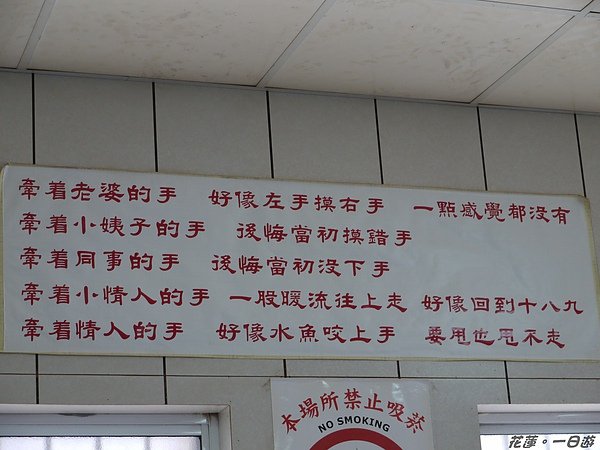 牽着老婆的手 好像左手摸右手 一點感覺都沒有
牽着小姨子的手 後悔當初摸錯手
牽着同事的手 後悔當初沒下手
牽着小情人的手 一股暖流往上走 好像回到十八九
牽着情人的手 好像水魚咬上手 要甩也甩不走
本場所禁止吸菸
NO SMOKING
花蓮。一日遊